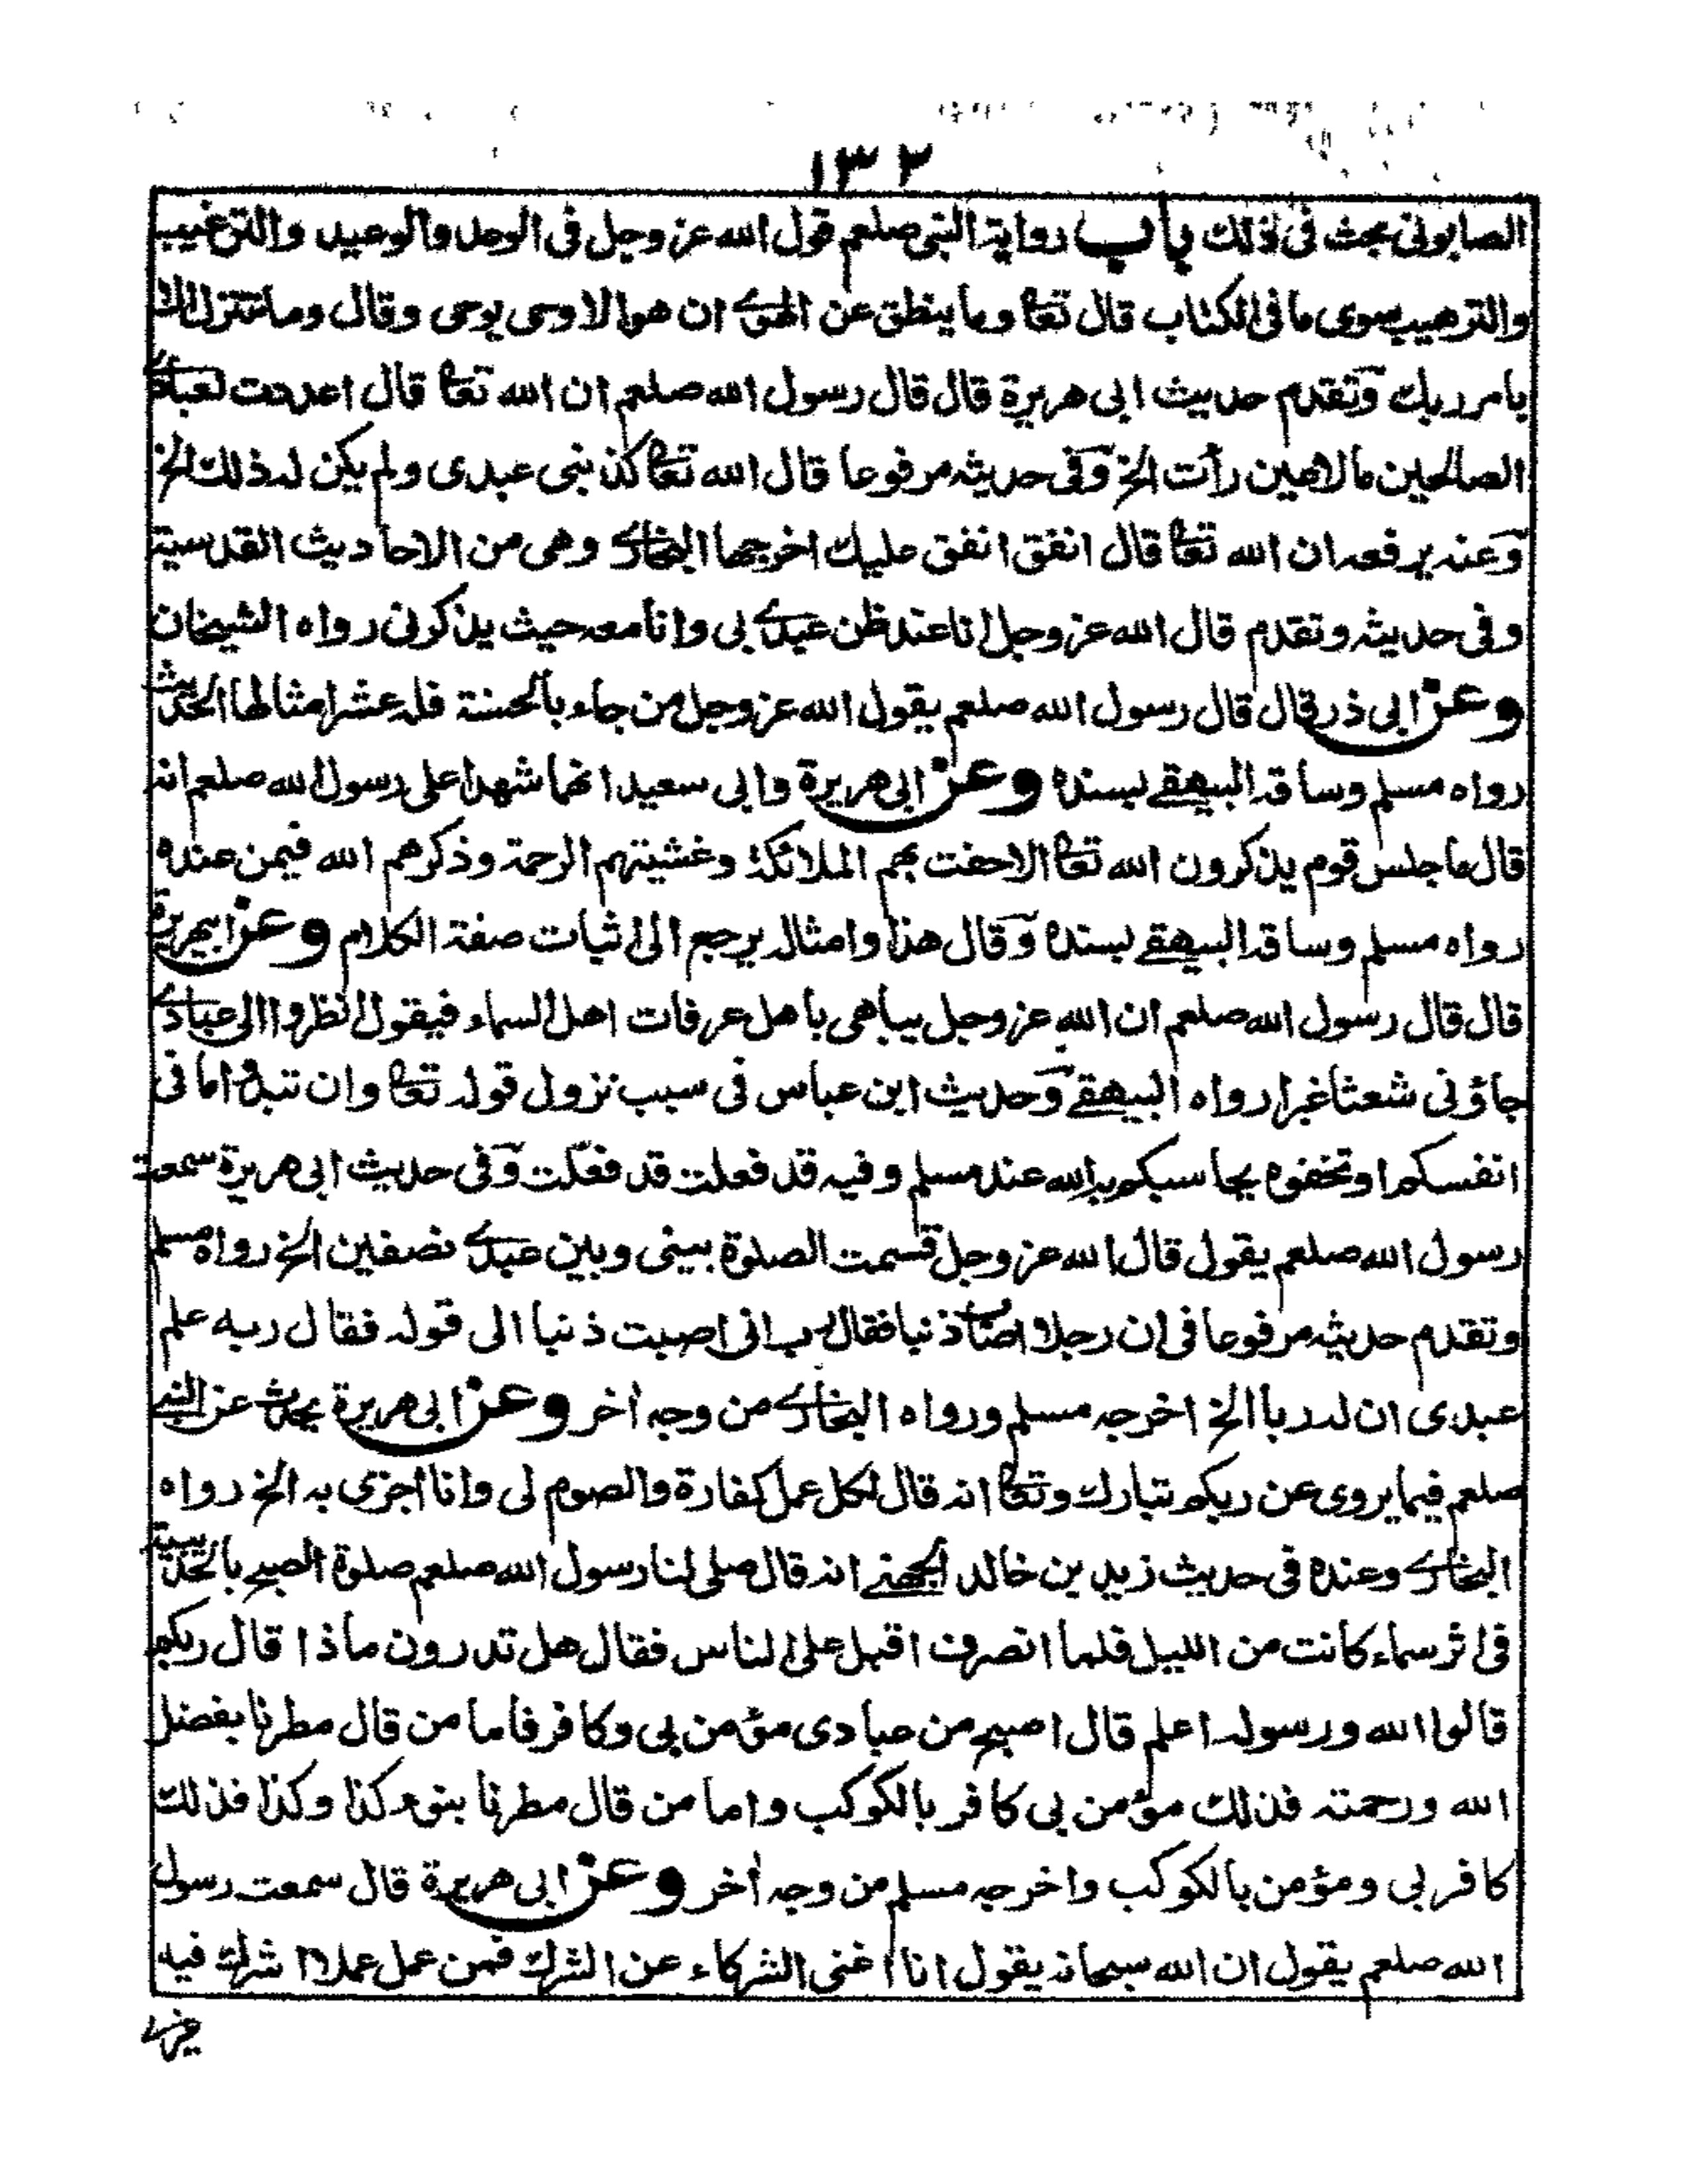 ١٣٢
الصابونى بحث فى ذلك باب رواية النبى صلعم قول الله عز وجل فى الوعد والوعيد والترغيب
والترهيب سوى ما فى الكتاب قال تعا وما ينطق عن الهوى ان هو الا وحى يوحى وقال وما نتنزل الا
بامر ربك وتقدم حديث ابى هريرة قال قال رسول الله صلعم ان الله تعا قال اعددت لعبادى
الصالحين ما لا عين رأت الخ وفى حديثه مرفوعا قال الله تعا كذبنى عبدى ولم يكن له ذلك الخ
وعنه يرفعه ان الله تعا قال انفق انفق عليك اخرجها البخارى وهى من الاحاديث القدسية
وفى حديثه وتقدم قال الله عز وجل انا عند ظن عبدى بى وانا معه حيث يذكرنى رواه الشيخان
وعن ابى ذر قال قال رسول الله صلعم يقول الله عز وجل من جاء بالحسنة فله عشر امثالها الحديث
رواه مسلم وساقه البيهقى بسنده وعن ابى هريرة وابى سعيد انهما شهدا على رسول الله صلعم انه
قال ما جلس قوم يذكرون الله تعا الا حفت بهم الملائكة وغشيتهم الرحمة وذكرهم الله فيمن عنده
رواه مسلم وساقه البيهقى بسنده وقال هذا وامثاله يرجع الى اثبات صفة الكلام وعن ابيهريرة
قال قال رسول الله صلعم ان الله عز وجل يباهى باهل عرفات اهل السماء فيقول انظروا الى عبادى
جاؤنى شعثا غبرا رواه البيهقى وحديث ابن عباس فى سبب نزول قوله تعا وان تبدوا ما فى
انفسكم او تخفوه يحاسبكم به الله عند مسلم وفيه قد فعلت قد فعلت وفى حديث ابى هريرة سمعت
رسول الله صلعم يقول قال الله عز وجل قسمت الصلوة بينى وبين عبدى نصفين الخ رواه مسلم
وتقدم حديثه مرفوعا فى ان رجلا اصاب ذنبا فقال رب انى اصبت ذنبا الى قوله فقال ربه علم
عبدى ان له ربا الخ اخرجه مسلم ورواه البخارى من وجه أخر وعن ابى هريرة يحدث عن النبى
صلعم فيما يروى عن ربكم تبارك وتعا انه قال لكل عمل كفارة والصوم لى وانا اجزى به الخ رواه
البخارى وعنده فى حديث زيد بن خالد الجهنى انه قال صلى لنا رسول الله صلعم صلوة الصبح بالحديبية
فى اثر سماء كانت من الليل فلما انصرف اقبل على الناس فقال هل تدرون ماذا قال ربكم
قالوا الله ورسوله اعلم قال اصبح من عبادى مؤمن بى وكافر فاما من قال مطرنا بفضل
الله ورحمته فذلك مؤمن بى كافر بالكوكب واما من قال مطرنا بنوء كذا وكذا فذلك
كافر بى ومؤمن بالكوكب واخرجه مسلم من وجه أخر وعن ابى هريرة قال سمعت رسول
الله صلعم يقول ان الله سبحانه يقول انا اغنى الشركاء عن الشرك فمن عمل عملا اشرك فيه
غيرى